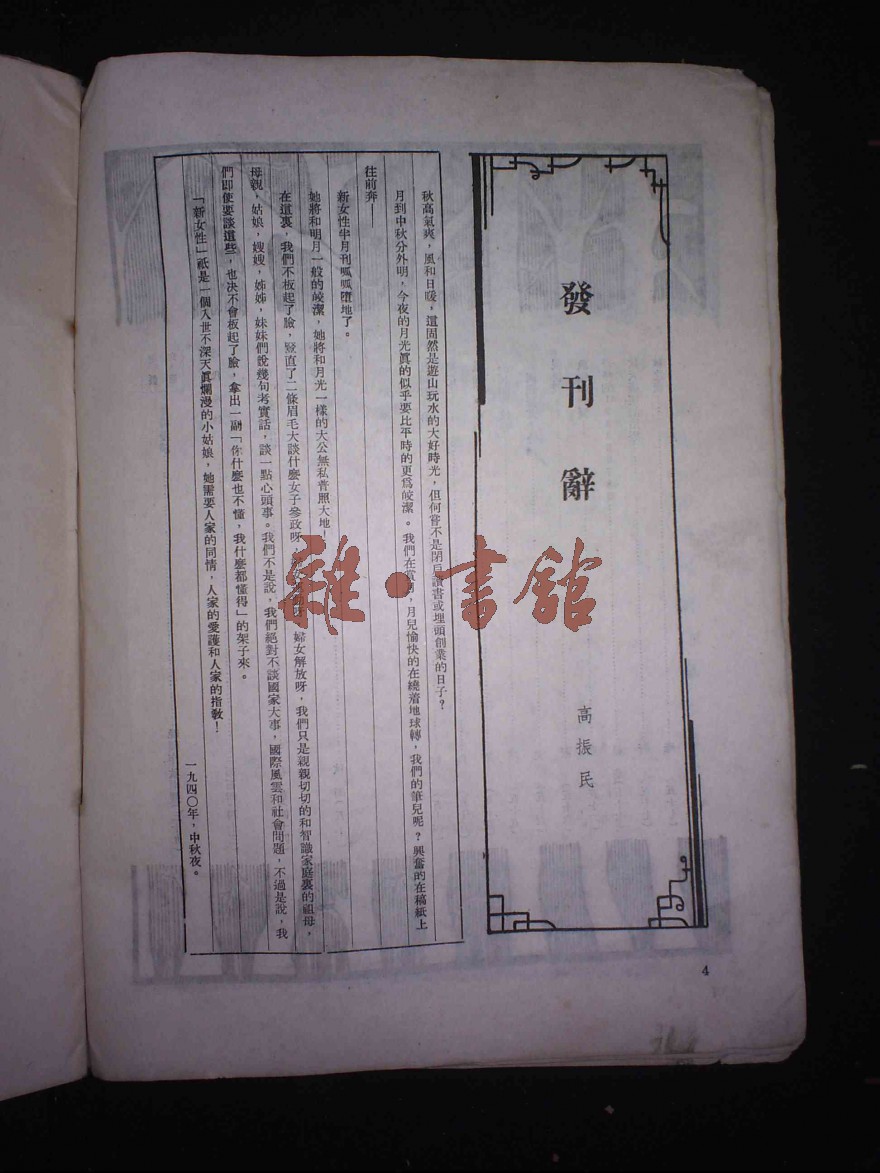 發刊辭
高振民
秋高氣爽，風和日暖，這固然是遊山玩水的大好時光，但何嘗不是閉戶讀書或埋頭創業的日子？
月到中秋分外明，今夜的月光眞的似乎要比平時的更爲皎潔。我們在賞月，月兒愉快的在繞着地球轉，我們的筆兒呢？興奮的在稿紙上
往前奔——
新女性半月刊呱呱墮地了。
她將和明月一般的皎潔，她將和月光一樣的大公無私普照大地！
在這裏，我們不板起了臉，豎直了二條眉毛大談什麼女子參政呀，婦女解放呀，我們只是親親切切的和智識家庭裏的祖母，
母親，姑娘，嫂嫂，姊姊，妹妹們說幾句老實話，談一點心頭事。我們不是說，我們絕對不談國家大事，國際風雲和社會問題，不過是說，我
們即使要談這些，也決不會板起了臉，拿出一副「你什麼也不懂，我什麼都懂得」的架子來。
「新女性」祇是一個入世不深天眞爛漫的小姑娘，她需要人家的同情，人家的愛護和人家的指敎！
一九四〇年，中秋夜。
4
雜·書館